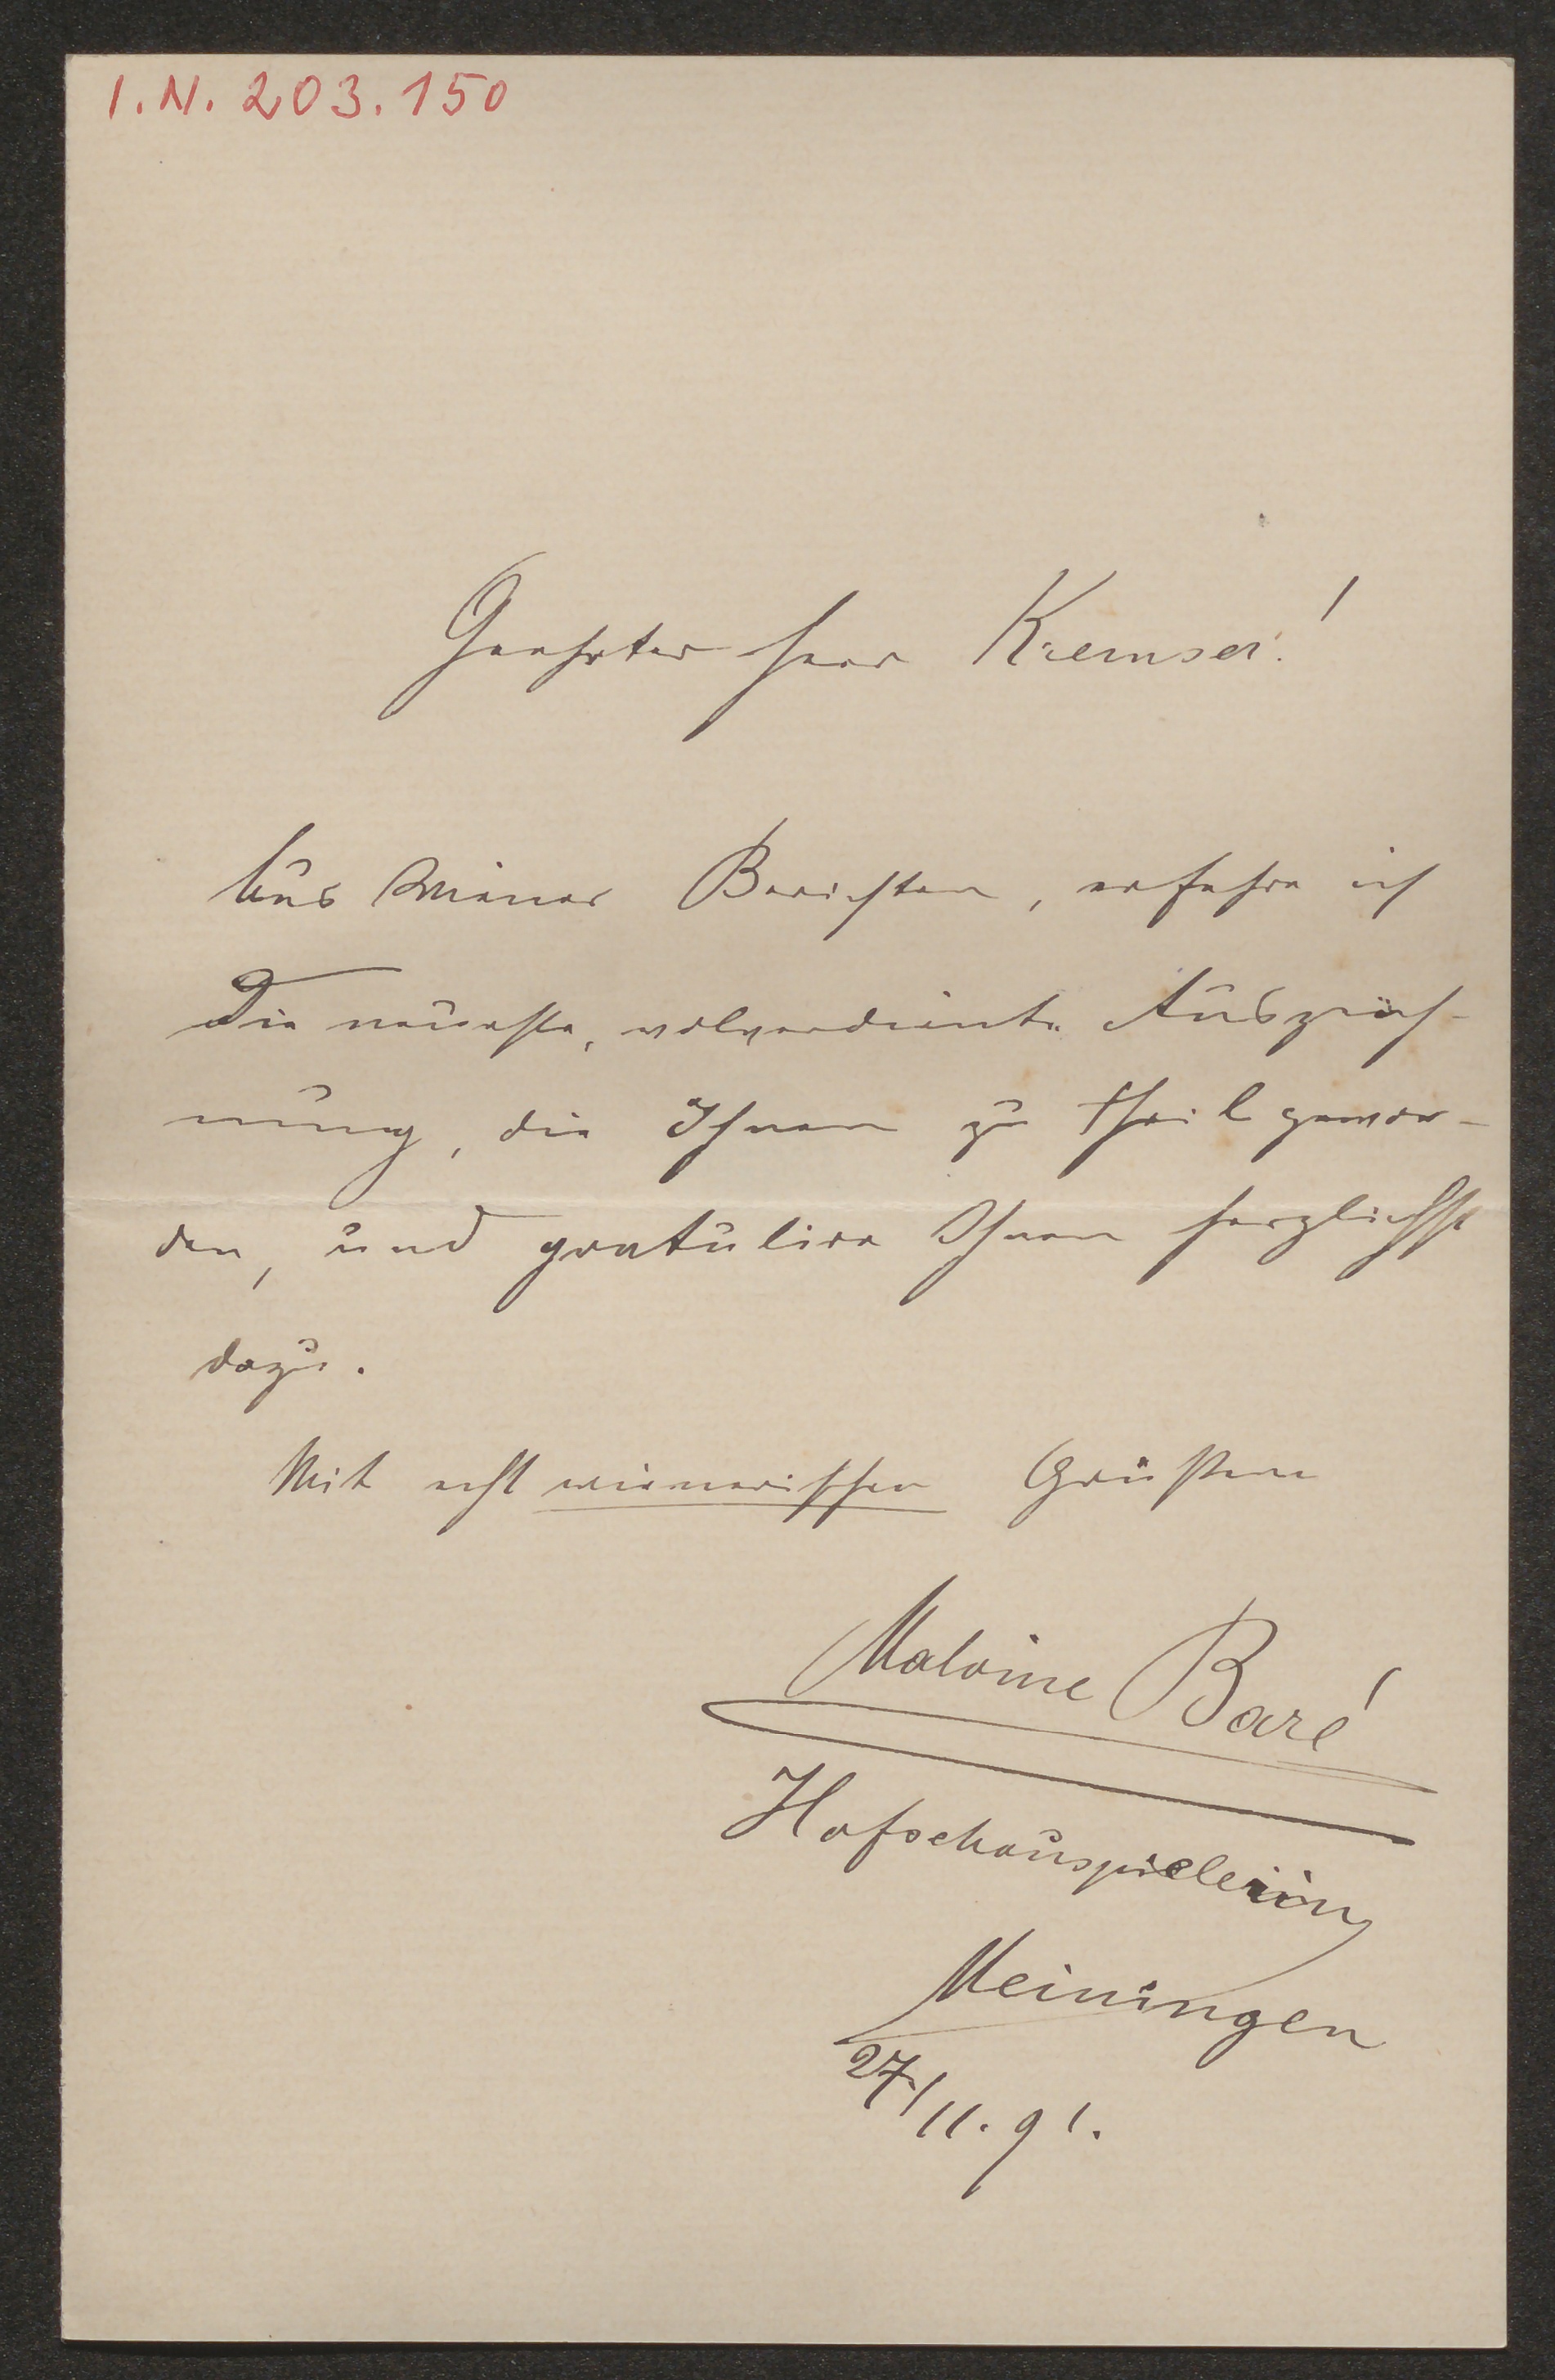 I.N. 203.150
Geehrter Herr Kremser!
Aus Wiener Berichten, erfahre ich
die neueste, wolverdiente Auszeich-
nung, die Ihnen zu Theil gewor-
den, und gratulire Ihnen herzlichst
dazu.
Mit echt wienerischen Grüßen
Malvine Baré
Hofschauspielerin
Meiningen
27/11. 91.